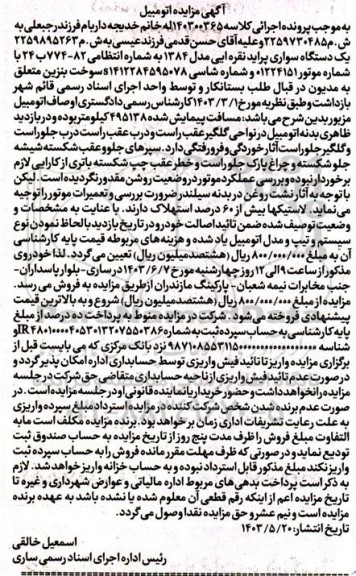 آگهی مزایده اتومبیل
به موجب پرونده اجرائی کلاسه ۱۴۰۳۰۰۳۶۵له خانم خدیجه داریام فرزند رجبعلی به
ش.م۲۲۵۹۷۳۰۴۸۵ و علیه آقای حسن قدمی فرزند عیسی به ش.م ۲۲۵۹۸۹۵۲۶۳
یک دستگاه سواری پراید نقره ایی مدل ۱۳۸۴ به شماره انتظامی ۸۲-۷۷۴ ب ۲۴ با
شماره موتور ۰۱۲۲۴۱۵۱ و شماره شاسی s۱۴۱۲۲۸۴۵۹۵۰۷۸ سوخت بنزین متعلق
به مدیون در قبال طلب بستانکار و توسط واحد اجرای اسناد رسمی قائم شهر
بازداشت وطبق نظریه مورخ ۱۴۰۳/۳/۱ کارشناس رسمی دادگستری اوصاف اتومبیل
مزبور بدین شرح می باشد: مسافت پیمایش شده ۴۹۵۱۳۸ کیلومتر بوده و در بازدید
ظاهری بدنه اتومبیل در نواحی گلگیر عقب راست و درب عقب راست درب جلو راست
و گلگیر جلو راست آثار خوردگی و فرورفتگی دارد. سپرهای جلو و عقب شکسته شیشه
جلو شکسته و چراغ پارک جلو راست و خطر عقب چپ شکسته باتری از کارایی لازم
برخوردار نبوده و بررسی عملکرد موتور در وضعیت روشن مقدور نگردیده است. لیکن
با توجه به آثار نشت روغن در بدنه سیلندر ضرورت بررسی و تعمیرات موتور را توجیه
می نماید. لاستیکها بیش از ۶۰ درصد استهلاک دارند. با عنایت به مشخصات و
وضعیت توصیف شده ضمن تائید اصالت خودرو در تاریخ بازدید بالحاظ نمودن نوع
سیستم و تیپ و مدل اتومبیل یاد شده و هزینه های مربوطه قیمت پایه کارشناسی
آن به مبلغ ۸۰۰/۰۰۰/۰۰۰ ریال (هشتصد میلیون ریال) تعیین می گردد. لذا خودروی
مذکور از ساعت ۹ الی ۱۲ روز چهارشنبه مورخ ۱۴۰۳/۶/۷ در ساری-بلوار پاسداران-
جنب مخابرات نیمه شعبان- پارکینگ مازندران از طریق مزایده به فروش می رسد.
مزایده از مبلغ ۸۰۰/۰۰۰/۰۰۰ ریال (هشتصد میلیون ریال) شروع و به بالاترین قیمت
پیشنهادی فروخته می شود. شرکت در مزایده منوط به پرداخت ده درصد از مبلغ
پایه کارشناسی به حساب سپرده ثبت به شماره IR۴۸۰۱۰۰۰۰۴۰۵۳۰۱۳۲۰۷۵۵۰۳۸۶ و
شناسه ۹۸۷۱۰۸۵۵۳۱۱۵۰۰۰۰۰۰۰۰۰۰۰۰۰۰۰۰ نزد بانک مرکزی که می بایست قبل از
برگزاری مزایده واریز تا تائید فیش واریزی توسط حسابداری اداره امکان پذیر گردد و
در صورت عدم تائید فیش واریزی از ناحیه حسابداری متقاضی حق شرکت در جلسه
مزایده را نخواهد داشت و حضور خریدار یا نماینده قانونی او در جلسه مزایده است. در
صورت عدم برنده شدن شخص شرکت کننده در مزایده استرداد مبلغ سپرده واریزی
به علت رعایت تشریفات اداری زمان بر خواهد بود. برنده مزایده مکلف است مابه
التفاوت مبلغ فروش را ظرف مدت پنج روز از تاریخ مزایده به حساب صندوق ثبت
تودیع نماید و در صورتی که ظرف مهلت مقرر مانده فروش را به حساب سپرده ثبت
واریز نکند مبلغ مذکور قابل استرداد نبوده و به حساب خزانه واریز خواهد شد. لازم
به ذکر است پرداخت بدهی های مربوط اداره مالیاتی و عوارض شهرداری و غیره تا
تاریخ مزایده اعم از اینکه رقم قطعی آن معلوم شده یا نشده باشد به عهده برنده
مزایده است و نیم عشر و حق مزایده نقدا وصول می گردد.
تاریخ انتشار: ۱۴۰۳/۵/۲۰
اسمعیل خالقی
رئیس اداره اجرای اسناد رسمی ساری